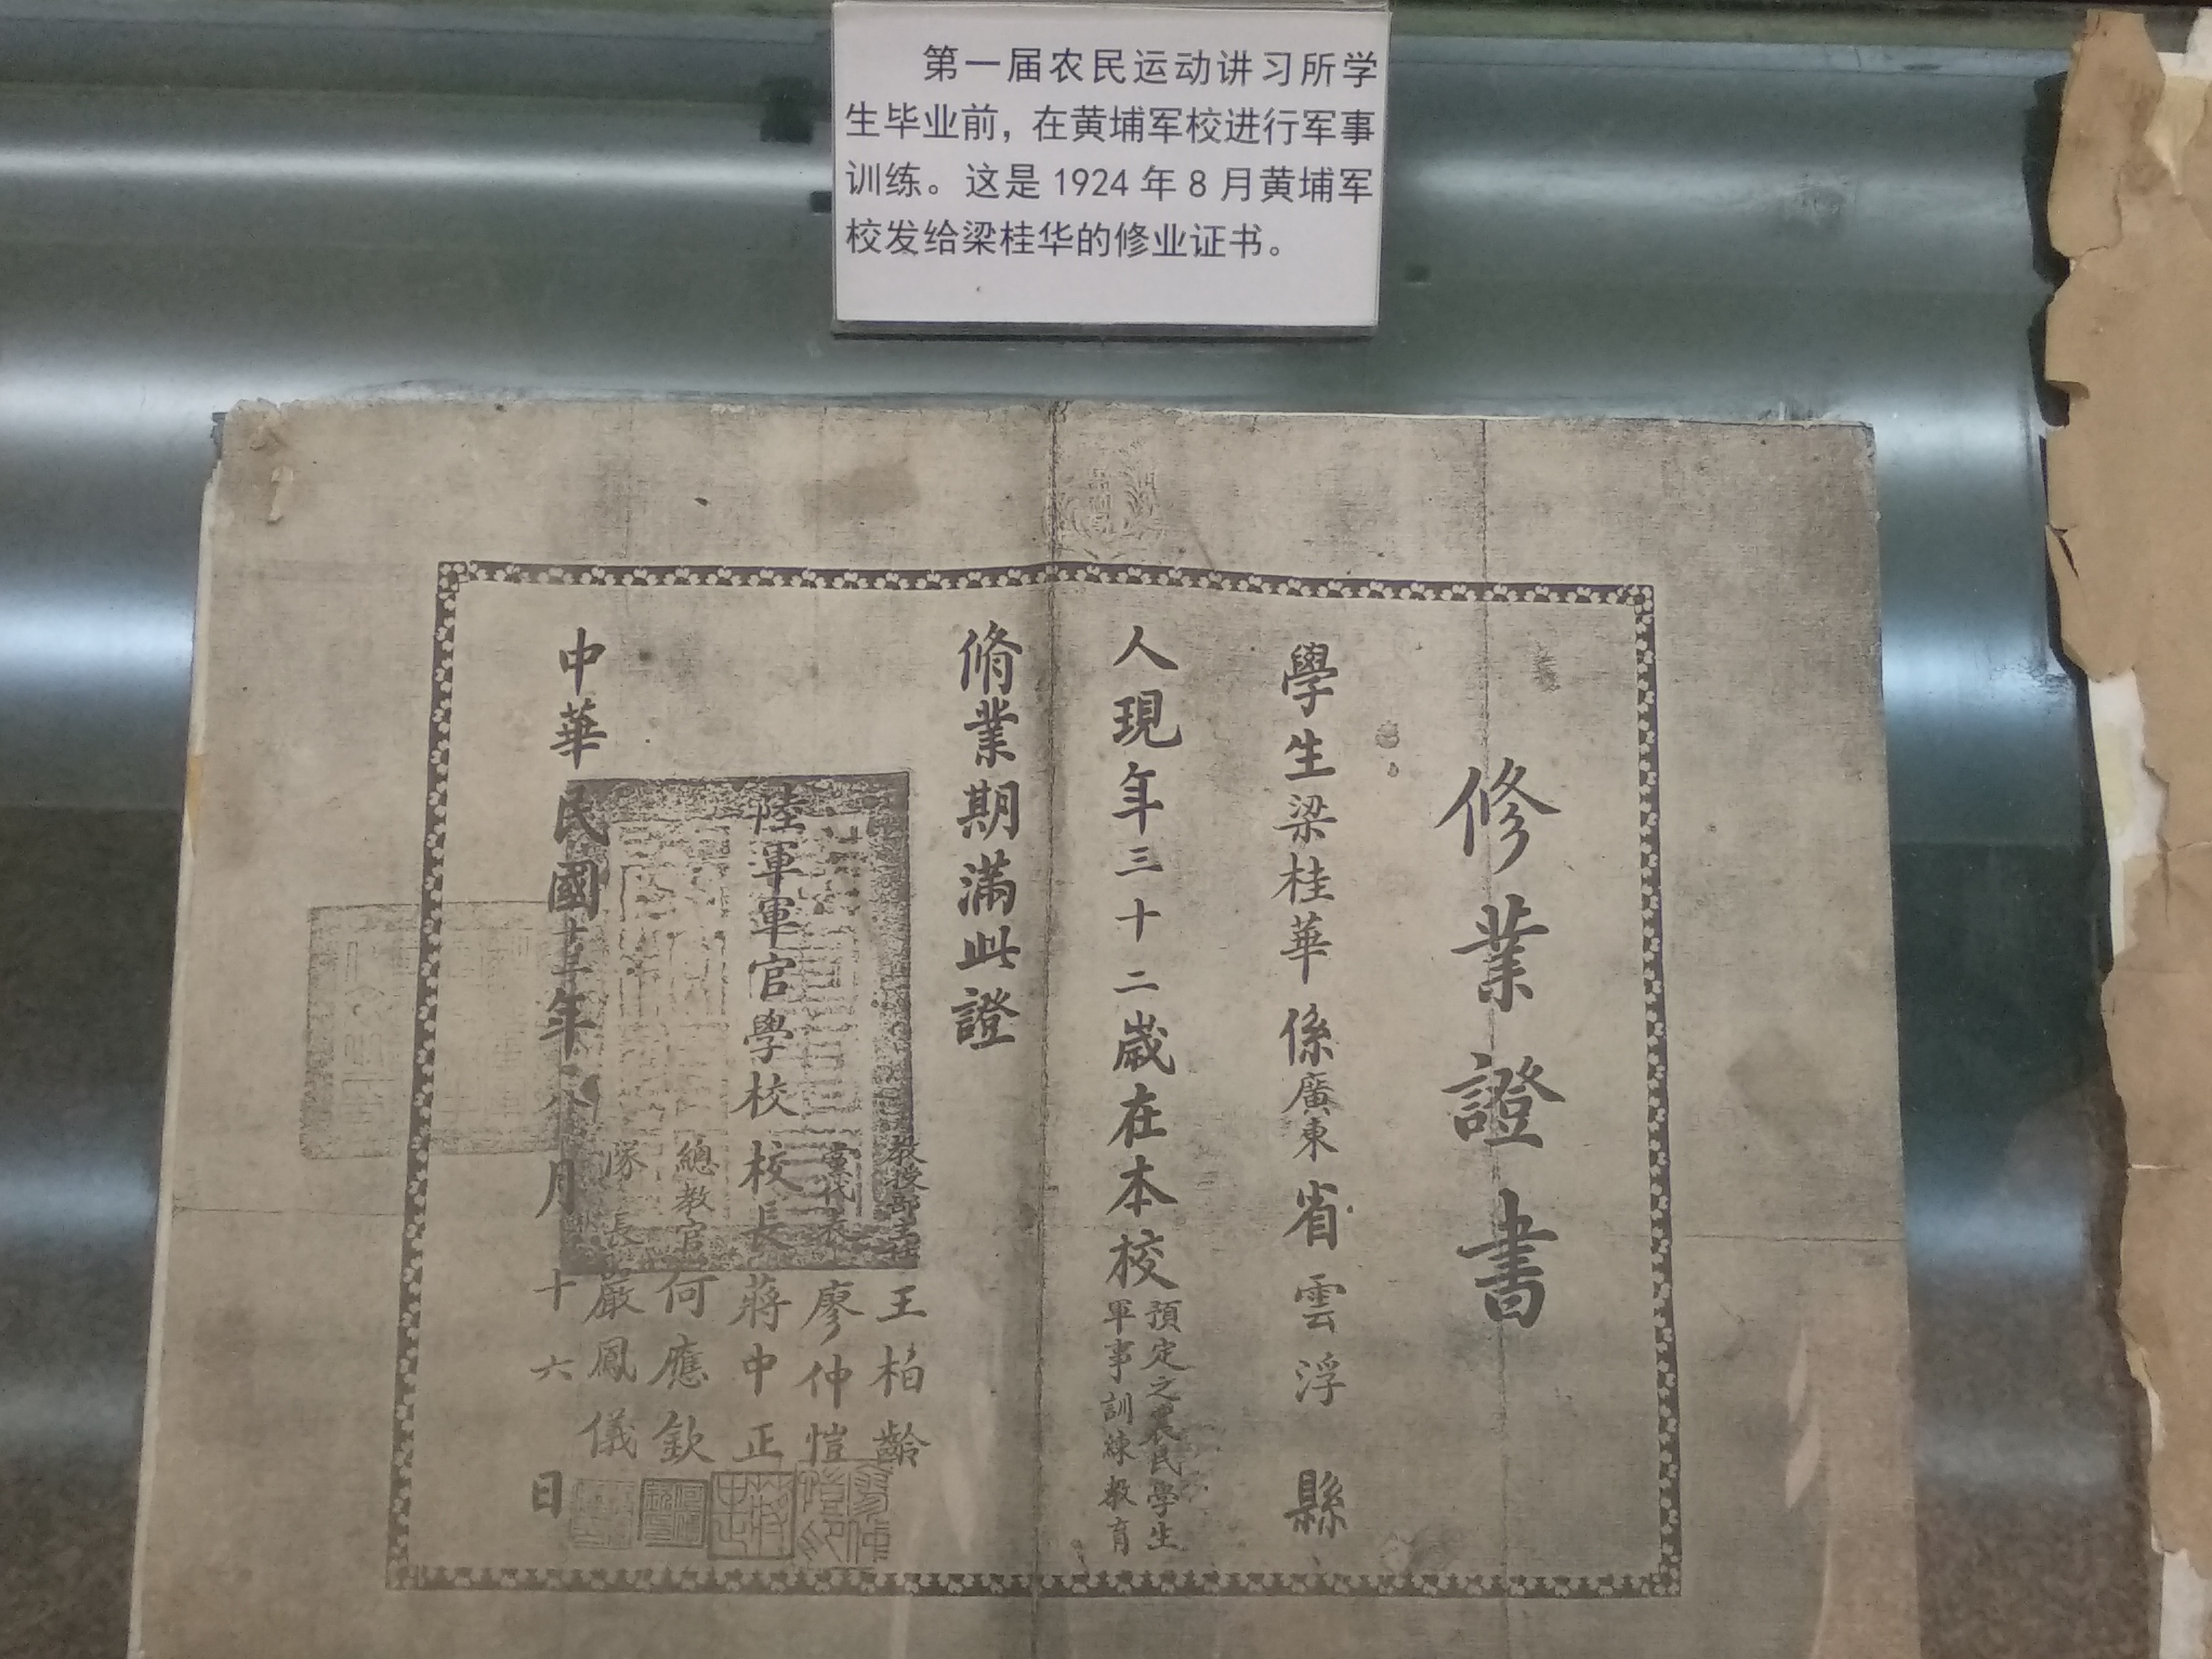 第一届农民运动讲习所学
生毕业前，在黄埔军校进行军事
训练。这是1924年8月黄埔军
校发给梁桂华的修业证书。
修業證書
學生梁桂華係廣東省雲浮縣
人現年三十二歲在本校預定之農民學生
軍事訓練教育
脩業期滿此證
教授部主任王柏齡
黨代表廖仲愷
陸軍軍官學校校長蔣中正
總教官何應欽
隊長嚴鳳儀
中華民國十三年八月十六日